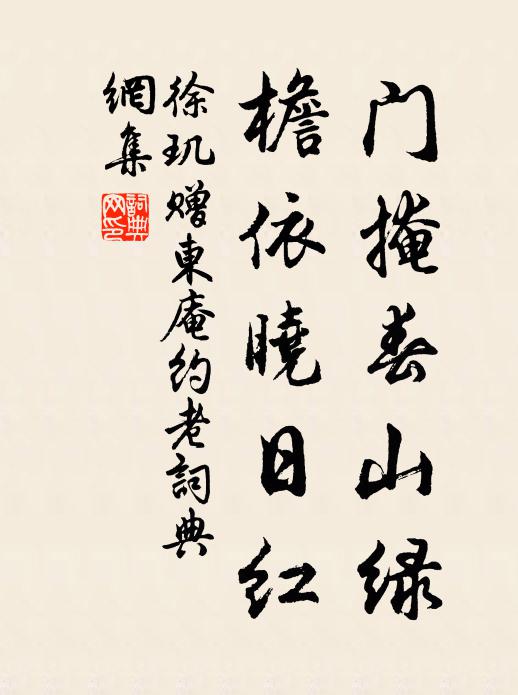 门掩春山绿
檐依曉日红
徐玑赠東庵约老詞典
網集
詞典
网印